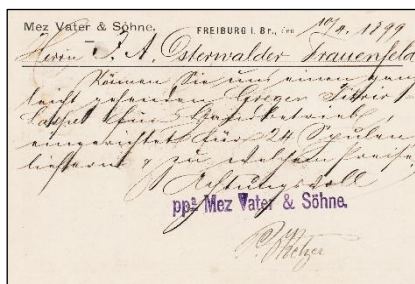 Mez Vater & Söhne. FREIBURG I. Br., den 10/4. 1899
Herrn J. A. Osterwalder Frauenfeld
Können Sie uns einen ganz
leicht gehenden
für
eingerichtet für 24 Spulen
liefern & zu welchem Preise.
Achtungsvoll
ppa Mez Vater & Söhne.